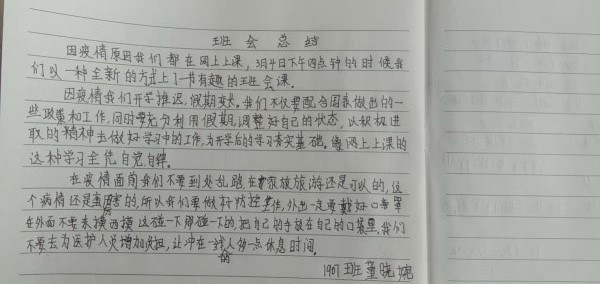 班会总结
因疫情原因我们都在网上上课，3月4日下午四点钟的时候我
们以一种全新的方式上了一节有趣的班会课。
因疫情我们开学推迟，假期变长。我们不仅要配合国家做出的一
些政策和工作，同时要充分利用假期，调整好自己的状态，以积极进
取的精神去做好学习中的工作，为开学后的学习夯实基础。像网上上课的
这种学习全凭自觉自律。
在疫情面前我们不要到处乱跑在家族旅游还是可以的，这
个病情还是蛮厉害的，所以我们要做好防控工作，外出一定要戴好口罩
在外面不要东摸西摸这碰一下那碰一下的，把自己的手放在自己的口袋里，我们
不要去为医护人员增加负担，让冲在一线的人多一点休息时间。
1907班董晓婉